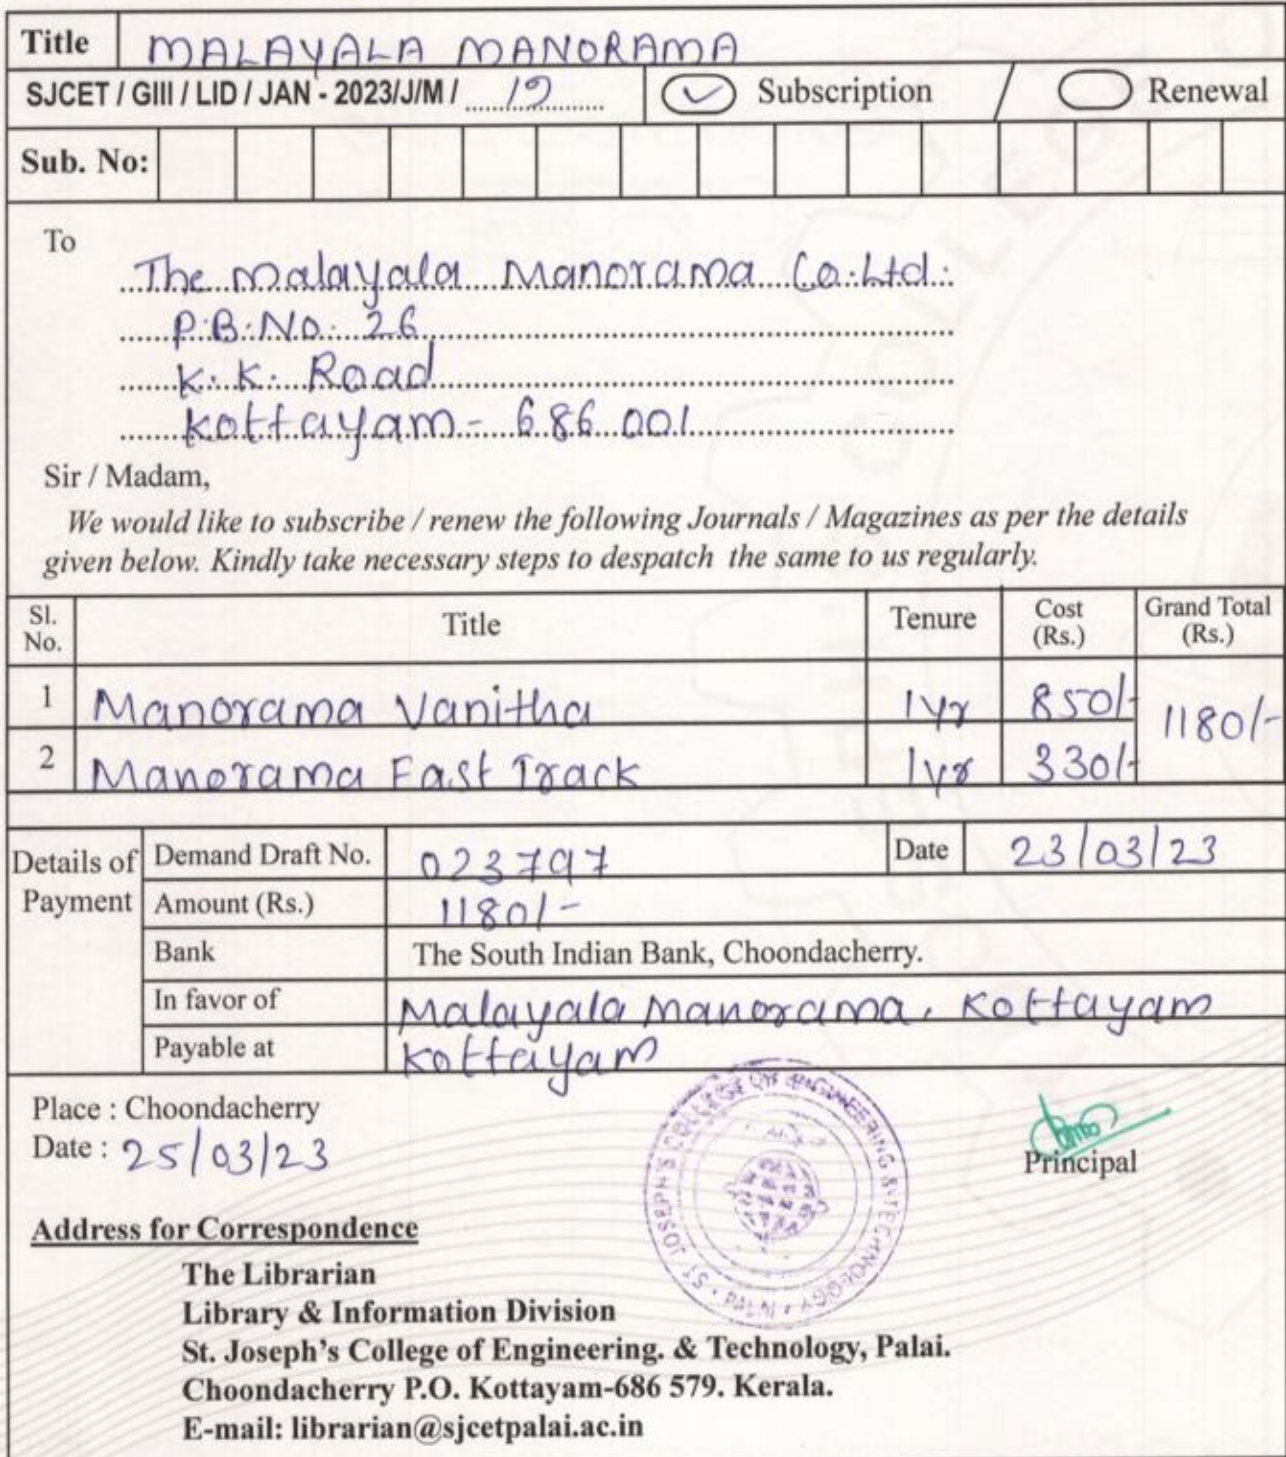 Title MALAYALA MANORAMA
SJCET / GIII / LID / JAN - 2023/J/M / 19 Subscription / Renewal
Sub. No:
To
The Malayala Manorama Co. Ltd.
P.B. No. 26
K. K. Road
Kottayam - 686 001
Sir / Madam,
We would like to subscribe / renew the following Journals / Magazines as per the details
given below. Kindly take necessary steps to despatch the same to us regularly.
Sl. No. Title Tenure Cost (Rs.) Grand Total (Rs.)
1 Manorama Vanitha 1yr 850/- 1180/-
2 Manorama Fast Track 1yr 330/-
Details of Payment
Demand Draft No. 023797 Date 23/03/23
Amount (Rs.) 1180/-
Bank The South Indian Bank, Choondacherry.
In favor of Malayala Manorama, Kottayam
Payable at Kottayam
Place : Choondacherry
Date : 25/03/23
ST. JOSEPH'S COLLEGE OF ENGINEERING & TECHNOLOGY
Principal
Address for Correspondence
The Librarian
Library & Information Division
St. Joseph's College of Engineering. & Technology, Palai.
Choondacherry P.O. Kottayam-686 579. Kerala.
E-mail: librarian@sjcetpalai.ac.in